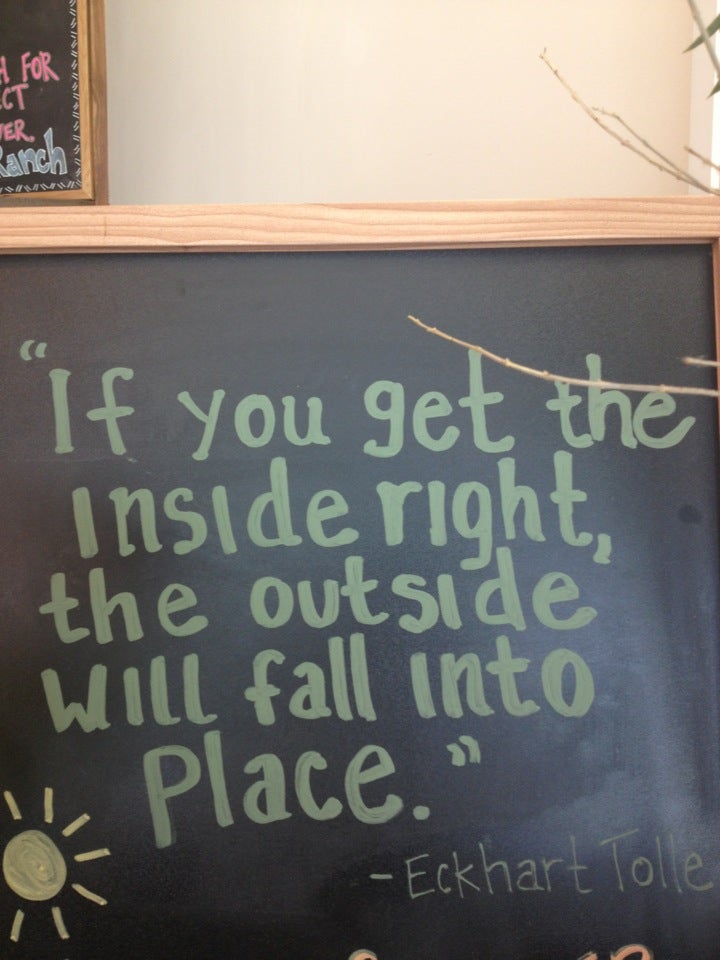 FOR
Ranch
“If you get the
Inside right,
the outside
Will fall into
Place.”
-Eckhart Tolle